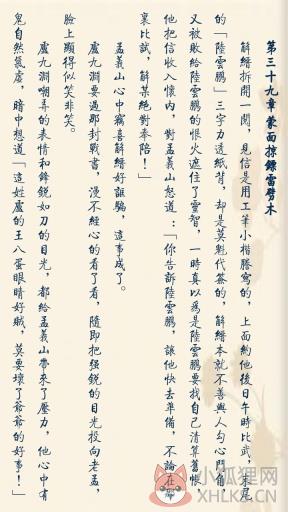 第三十九章 蒙面掠鏢雷劈木
解縉拆開一閱,見信是用工筆小楷謄寫的,上面約他後日午時比武,末尾
的「陸雲鵬」三字力透紙背,却是莫魁代簽的,解縉本就不善與人勾心鬥角
又被敗給陸雲鵬的恨火遮住了靈智,一時真以為是陸雲鵬要找自己清算舊帳
他把信收入懷內,對孟義山怒道:「你告訴陸雲鵬,讓他快去準備,不論在
裏比試,解某絕對奉陪!」
孟義山心中竊喜解縉好誆騙,這事成了。
盧九淵要過那封戰書,漫不經心的看了看,隨即把強銳的目光投向老孟,
臉上顯得似笑非笑。
盧九淵嘲弄的表情和鋒銳如刀的目光,都給孟義山帶來了壓力,他心中有
鬼自然氣虛,暗中想道「這姓盧的王八蛋眼睛好賊,莫要壞了爺爺的好事!」
小狐狸网
XHLKB.CN